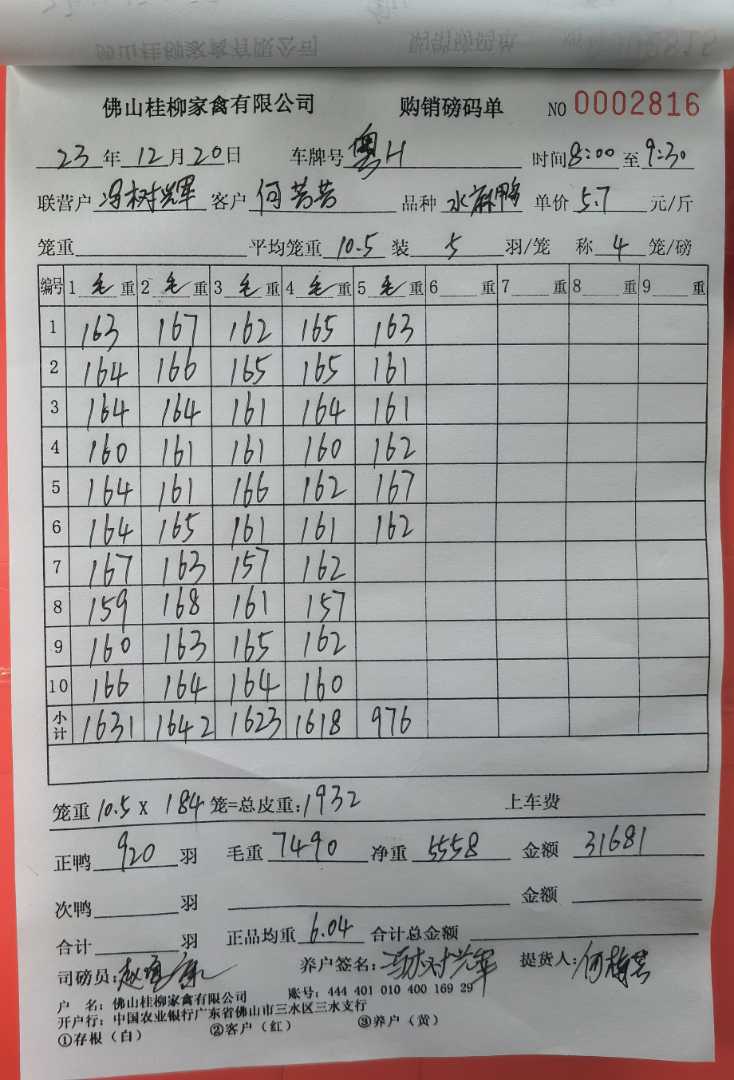 佛山桂柳家禽有限公司 购销磅码单 NO 0002816
23年12月20日 车牌号 粤H 时间8:00至9:30
联营户 冯树辉 客户 何芳芳 品种 水麻鸭 单价 5.7 元/斤
笼重 平均笼重 10.5 装 5 羽/笼 称 4 笼/磅
编号 1 毛 重 2 毛 重 3 毛 重 4 毛 重 5 毛 重 6 重 7 重 8 重 9 重
1 163 167 162 165 163
2 164 166 165 165 161
3 164 164 161 164 161
4 160 161 161 160 162
5 164 161 166 162 167
6 164 165 161 161 162
7 167 163 157 162
8 159 168 161 157
9 160 163 165 162
10 166 164 164 160
小计 1631 1642 1623 1618 976
笼重 10.5 X 184 笼=总皮重:1932 上车费
正鸭 920 羽 毛重 7490 净重 5558 金额 31681
次鸭 羽 金额
合计 羽 正品均重 6.04 合计总金额
司磅员: 养户签名: 冯树辉 提货人:
户 名: 佛山桂柳家禽有限公司 账号: 444 401 010 400 169 29
开户行: 中国农业银行广东省佛山市三水区三水支行
①存根(白) ②客户(红) ③养户(黄)